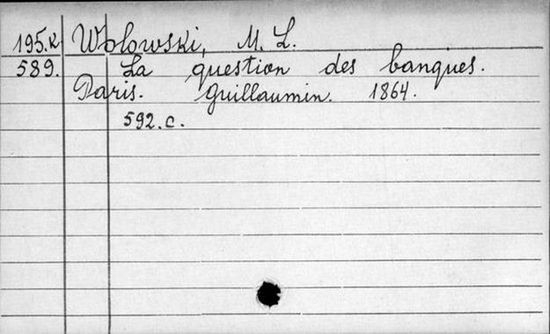 195.K Wolowski, M. L.
589. La question des banques.
Paris. Guillaumin. 1864.
592.c.